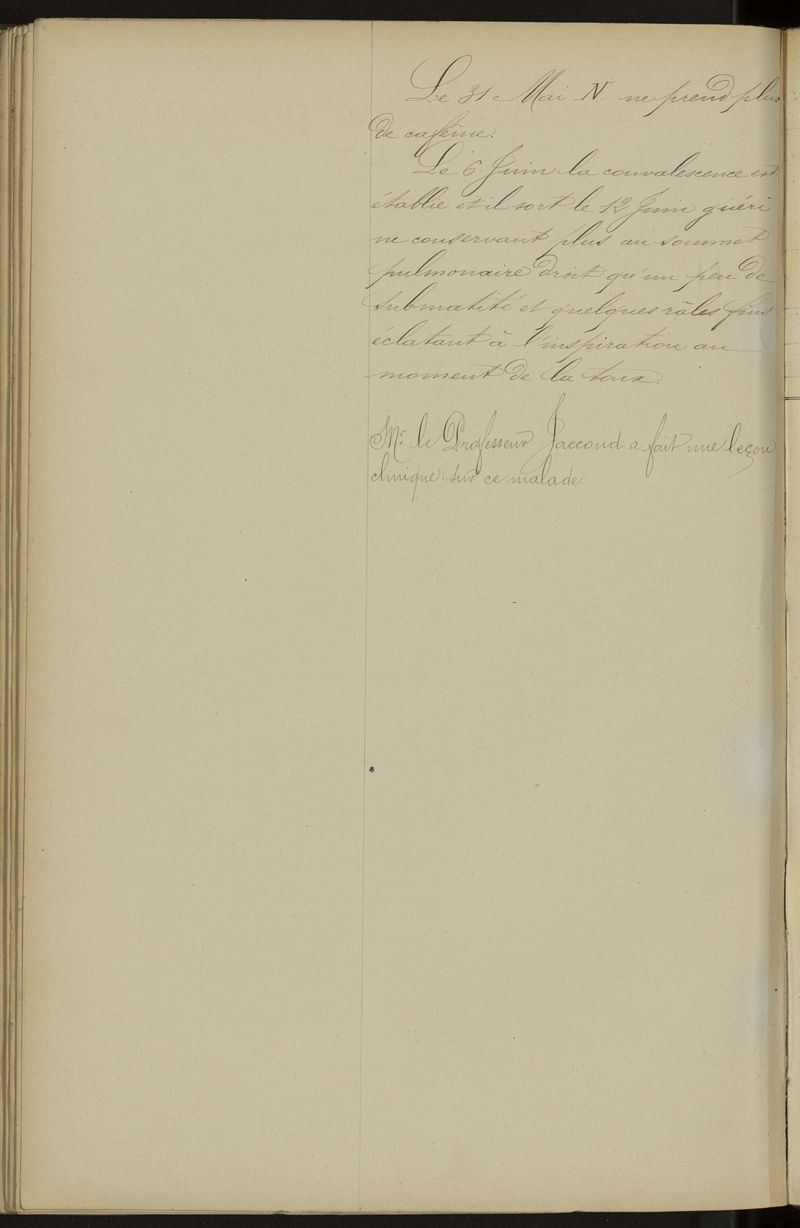 Le 31 Mai N... ne prend plus
de caféine.
Le 6 Juin la convalescence est
établie et il sort le 12 Juin guéri
ne conservant plus au sommet
pulmonaire droit qu'un peu de
submatité et quelques râles fins
éclatant à l'inspiration au
moment de la toux.
Mr. le Professeur Jaccoud a fait une leçon
clinique sur ce malade.